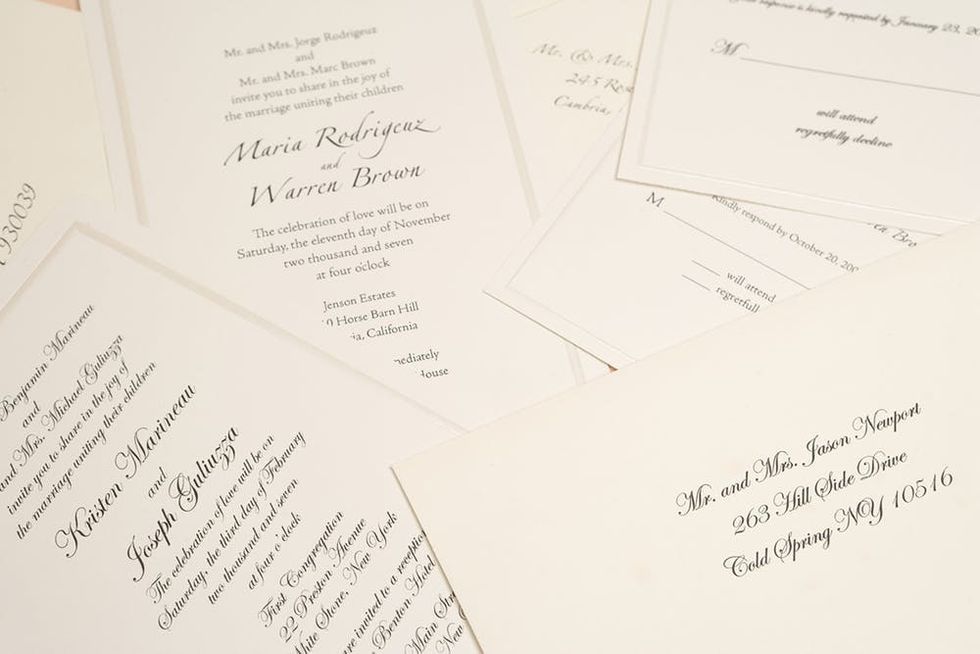 Mr. and Mrs. Jorge Rodrigeuz
and
Mr. and Mrs. Marc Brown
invite you to share in the joy of
the marriage uniting their children
Maria Rodrigeuz
and
Warren Brown
The celebration of love will be on
Saturday, the eleventh day of November
two thousand and seven
at four o'clock
Jenson Estates
Horse Barn Hill
California
Mr. & Mrs.
245
Cambria,
response is kindly requested by January 23,
M
will attend
regretfully decline
M
kindly respond by October 20,
will attend
930039
Benjamin Marineau
and
and Mrs. Michael Guliuzza
invite you to share in the joy of
the marriage uniting their children
Kristen Marineau
and
Joseph Guliuzza
The celebration of love will be on
Saturday, the third day of February
two thousand and seven
at four o'clock
First Congregation
22 Preston Avenue
Stone, New York
are invited to a reception
Benton Hotel
Main
New
Mr. and Mrs. Jason Newport
263 Hill Side Drive
Cold Spring NY 10516